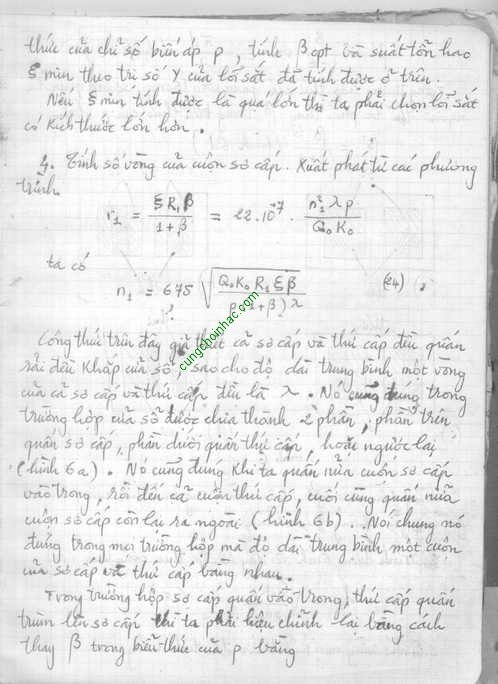 thức của chỉ số biến áp p, tính β opt và suất tổn hao
ξ min theo trị số Y của lõi sắt đã tính được ở trên.
Nếu ξ min tính được là quá lớn thì ta phải chọn lõi sắt
có kích thước lớn hơn.
4. Tính số vòng của cuộn sơ cấp. Xuất phát từ các phương
trình
r₁ = ξ R₁ β / (1 + β) = 22.10⁻⁷ . n₁² λ p / (Q₀ K₀)
ta có
n₁ = 675 √(Q₀ K₀ R₁ ξ β / p(1 + β) λ) (24)
cungchoinhac.com
Công thức trên đây giả thiết cả sơ cấp và thứ cấp đều quấn
rải đều khắp cửa sổ, sao cho độ dài trung bình một vòng
của cả sơ cấp và thứ cấp đều là λ. Nó cũng đúng trong
trường hợp cửa sổ được chia thành 2 phần, phần trên
quấn sơ cấp, phần dưới quấn thứ cấp, hoặc ngược lại
(hình 6a). Nó cũng đúng khi ta quấn nửa cuộn sơ cấp
vào trong, rồi đến cả cuộn thứ cấp, cuối cùng quấn nửa
cuộn sơ cấp còn lại ra ngoài (hình 6b)... Nói chung nó
đúng trong mọi trường hợp mà độ dài trung bình một cuộn
của sơ cấp và thứ cấp bằng nhau.
Trong trường hợp sơ cấp quấn vào trong, thứ cấp quấn
trùm lên sơ cấp thì ta phải hiệu chỉnh lại bằng cách
thay β trong biểu thức của p bằng